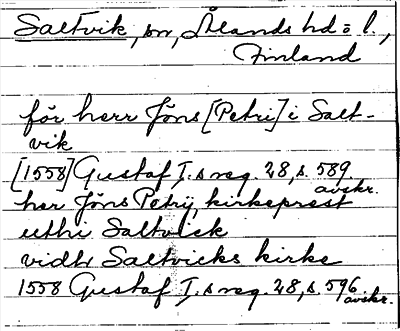 Saltvik, sn, Ålands hd o l.,
Finland
för herr Jöns [Petri] i Salt-
vik
[1558] Gustaf I.s reg. 28, s. 589
avskr.
her Jöns Petrij, kirkeprest
uthi Saltvick
vidtr Saltvicks kirke
1558 Gustaf I.s reg. 28, s. 596
avskr.